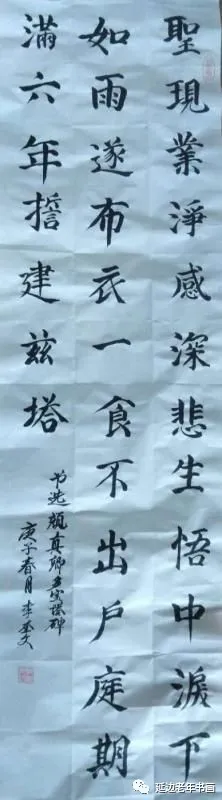 聖現業淨感深悲生悟中淚下
如雨遂布衣一食不出戶庭期
滿六年誓建兹塔
书选颜真卿多宝塔碑
庚子春月李玉文
延边老年书画